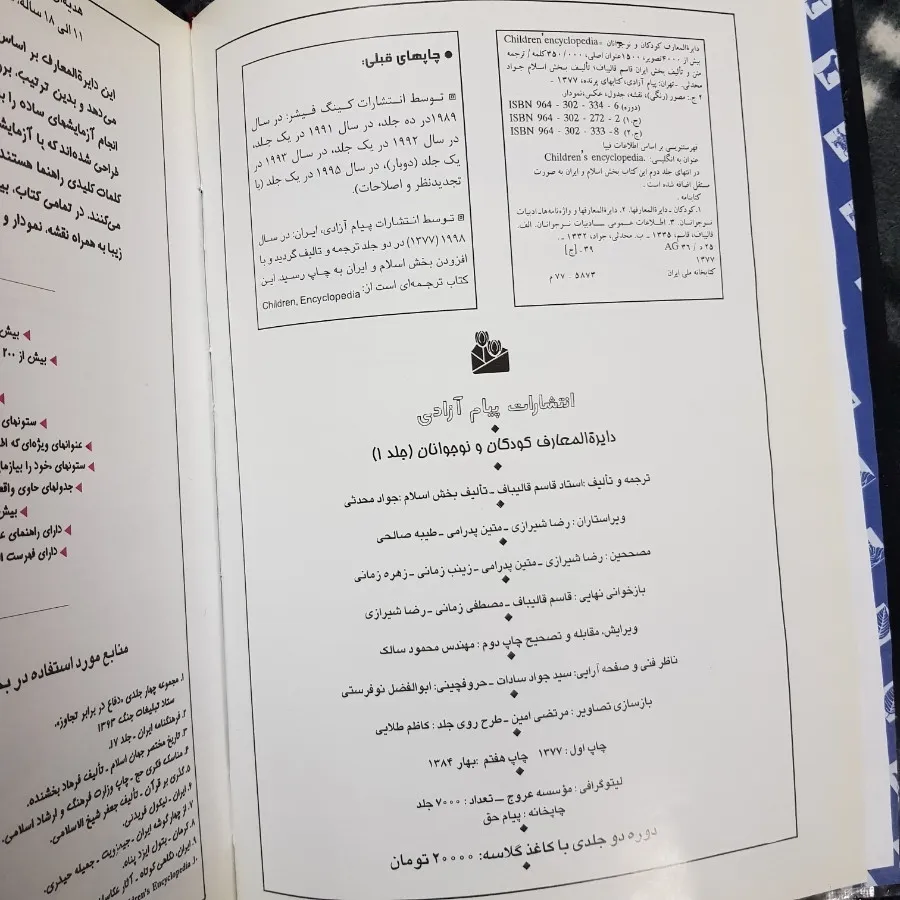 دایرةالمعارف کودکان و نوجوانان = Children'encyclopedia
بیش از ۴۰۰۰ تصویر، ۱۵۰۰ عنوان اصلی، ۳۵۰/۰۰۰ کلمه / ترجمه
متن و تألیف بخش ایران قاسم قالیباف؛ تألیف بخش اسلام جواد
محدثی. - تهران: پیام آزادی، کتابهای پرنده، ۱۳۷۷.
۲ ج.: مصور (رنگی)، نقشه، جدول، عکس، نمودار.
ISBN 964 - 302 - 334 - 6 (دوره)
ISBN 964 - 302 - 272 - 2 (ج.۱)
ISBN 964 - 302 - 333 - 8 (ج.۲)
فهرستنویسی بر اساس اطلاعات فیپا
عنوان به انگلیسی: Children's encyclopedia.
در انتهای جلد دوم این کتاب بخش اسلام و ایران به صورت
مستقل اضافه شده است.
کتابنامه.
۱. کودکان - دایرةالمعارفها. ۲. دایرةالمعارفها و واژه‌نامه‌ها - ادبیات
نوجوانان. ۳. اطلاعات عمومی - ادبیات نوجوانان. الف.
قالیباف، قاسم، ۱۳۳۵ - ب. محدثی، جواد، ۱۳۳۲ - .
۲۵ د / AG ۳۶ ۰۳۹ [ج]
۱۳۷۷
کتابخانه ملی ایران ۵۸۷۳ - ۷۷م
● چاپهای قبلی:
توسط انتشارات کینگ فیشر: در سال
۱۹۸۹ در ده جلد، در سال ۱۹۹۱ در یک جلد،
در سال ۱۹۹۲ در یک جلد، در سال ۱۹۹۳ در
یک جلد (دوبار)، در سال ۱۹۹۵ در یک جلد (با
تجدیدنظر و اصلاحات).
توسط انتشارات پیام آزادی، ایران: در سال
۱۹۹۸ (۱۳۷۷) در دو جلد ترجمه و تالیف گردید و با
افزودن بخش اسلام و ایران به چاپ رسید. این
کتاب ترجمه‌ای است از: Children, Encyclopedia
انتشارات پیام آزادی
دایرةالمعارف کودکان و نوجوانان (جلد ۱)
ترجمه و تألیف: استاد قاسم قالیباف ـ تألیف بخش اسلام: جواد محدثی
ویراستاران: رضا شیرازی ـ متین پدرامی ـ طیبه صالحی
مصححین: رضا شیرازی ـ متین پدرامی ـ زینب زمانی ـ زهره زمانی
بازخوانی نهایی: قاسم قالیباف ـ مصطفی زمانی ـ رضا شیرازی
ویرایش، مقابله و تصحیح چاپ دوم: مهندس محمود سالک
ناظر فنی و صفحه آرایی: سید جواد سادات ـ حروفچینی: ابوالفضل نوفرستی
بازسازی تصاویر: مرتضی امین ـ طرح روی جلد: کاظم طلایی
چاپ اول: ۱۳۷۷ چاپ هفتم: بهار ۱۳۸۴
لیتوگرافی: مؤسسه عروج ـ تعداد: ۷۰۰۰ جلد
چاپخانه: پیام حق
دوره دو جلدی با کاغذ گلاسه: ۲۰۰۰۰ تومان
هدیه‌ای
۱۱ الی ۱۸ ساله.
این دایرةالمعارف بر اساس
می‌دهد و بدین ترتیب، برو
انجام آزمایشهای ساده را به
طراحی شده‌اند که با آزمایش
کلمات کلیدی راهنما هستند
می‌کنند. در تمامی کتاب، بی
زیبا به همراه نقشه، نمودار و
بیش
بیش از ۲۰۰
ستونهای
عنوانهای ویژه‌ای که اط
ستونهای «خود را بیازما
جدولهای حاوی واقع
بیش
دارای راهنمای ع
دارای فهرست ا
منابع مورد استفاده در بخ
۱. مجموعه چهار جلدی «دفاع در برابر تجاوز»،
ستاد تبلیغات جنگ ۱۳۶۳
۲. فرهنگنامه ایران ـ جلد ۱۷.
۳. تاریخ مختصر جهان اسلام ـ تألیف فرهاد بخشنده.
۴. مناسک فکری حج ـ چاپ وزارت فرهنگ و ارشاد اسلامی.
۵. گذری بر قرآن ـ تألیف جعفر شیخ الاسلامی.
۶. ایران ـ نیکول فریدنی.
۷. از چهار گوشه ایران ـ جیدزویت ـ جمیله حیدری.
۸. کرمان ـ بتول ایزد پناه.
۹. ایران، نگاهی کوتاه ـ آثار عکاسا
۱۰. Children's Encyclopedia